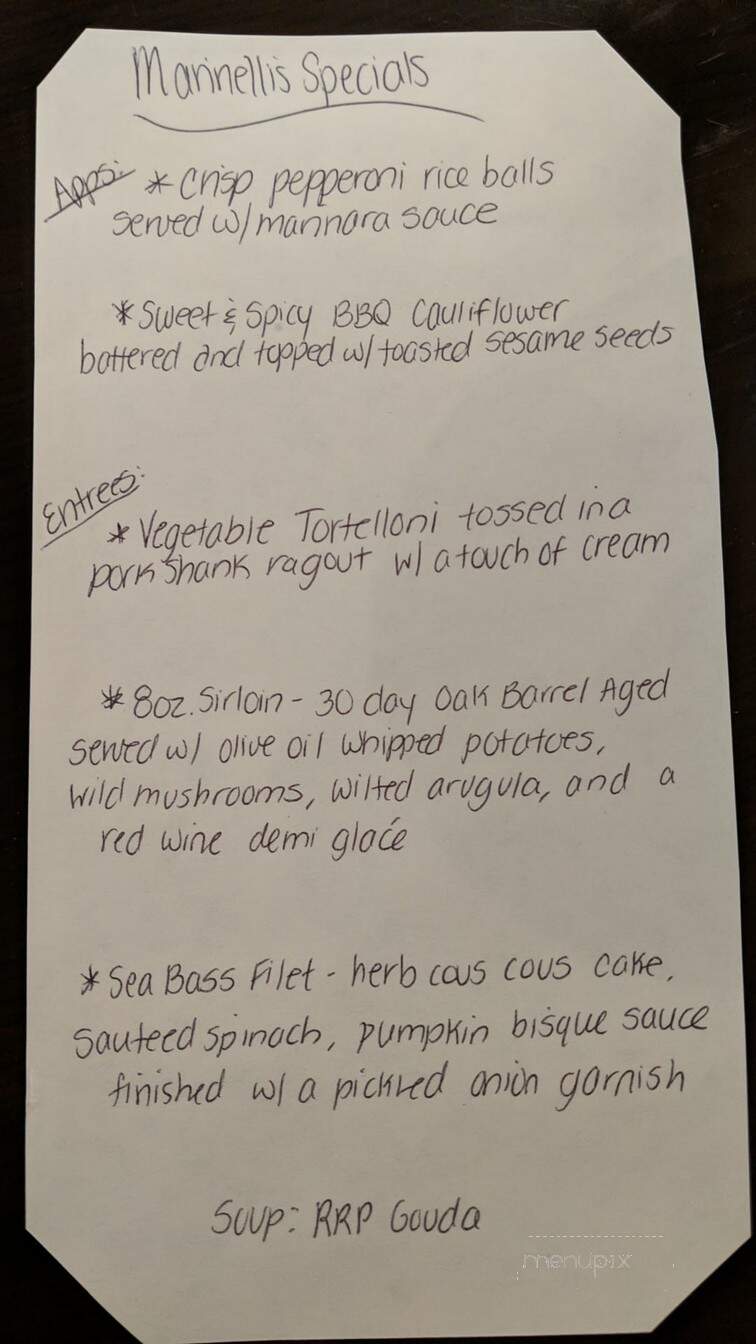 Marinellis Specials
Apps: * Crisp pepperoni rice balls
served w/ marinara sauce
* Sweet & Spicy BBQ Cauliflower
battered and topped w/ toasted sesame seeds
Entrees:
* Vegetable Tortelloni tossed in a
pork shank ragout w/ a touch of cream
* 8oz. Sirloin - 30 day Oak Barrel Aged
served w/ olive oil whipped potatoes,
wild mushrooms, wilted arugula, and a
red wine demi glacé
* Sea Bass Filet - herb cous cous cake,
sauteed spinach, pumpkin bisque sauce
finished w/ a pickled onion garnish
Soup: RRP Gouda
menupix